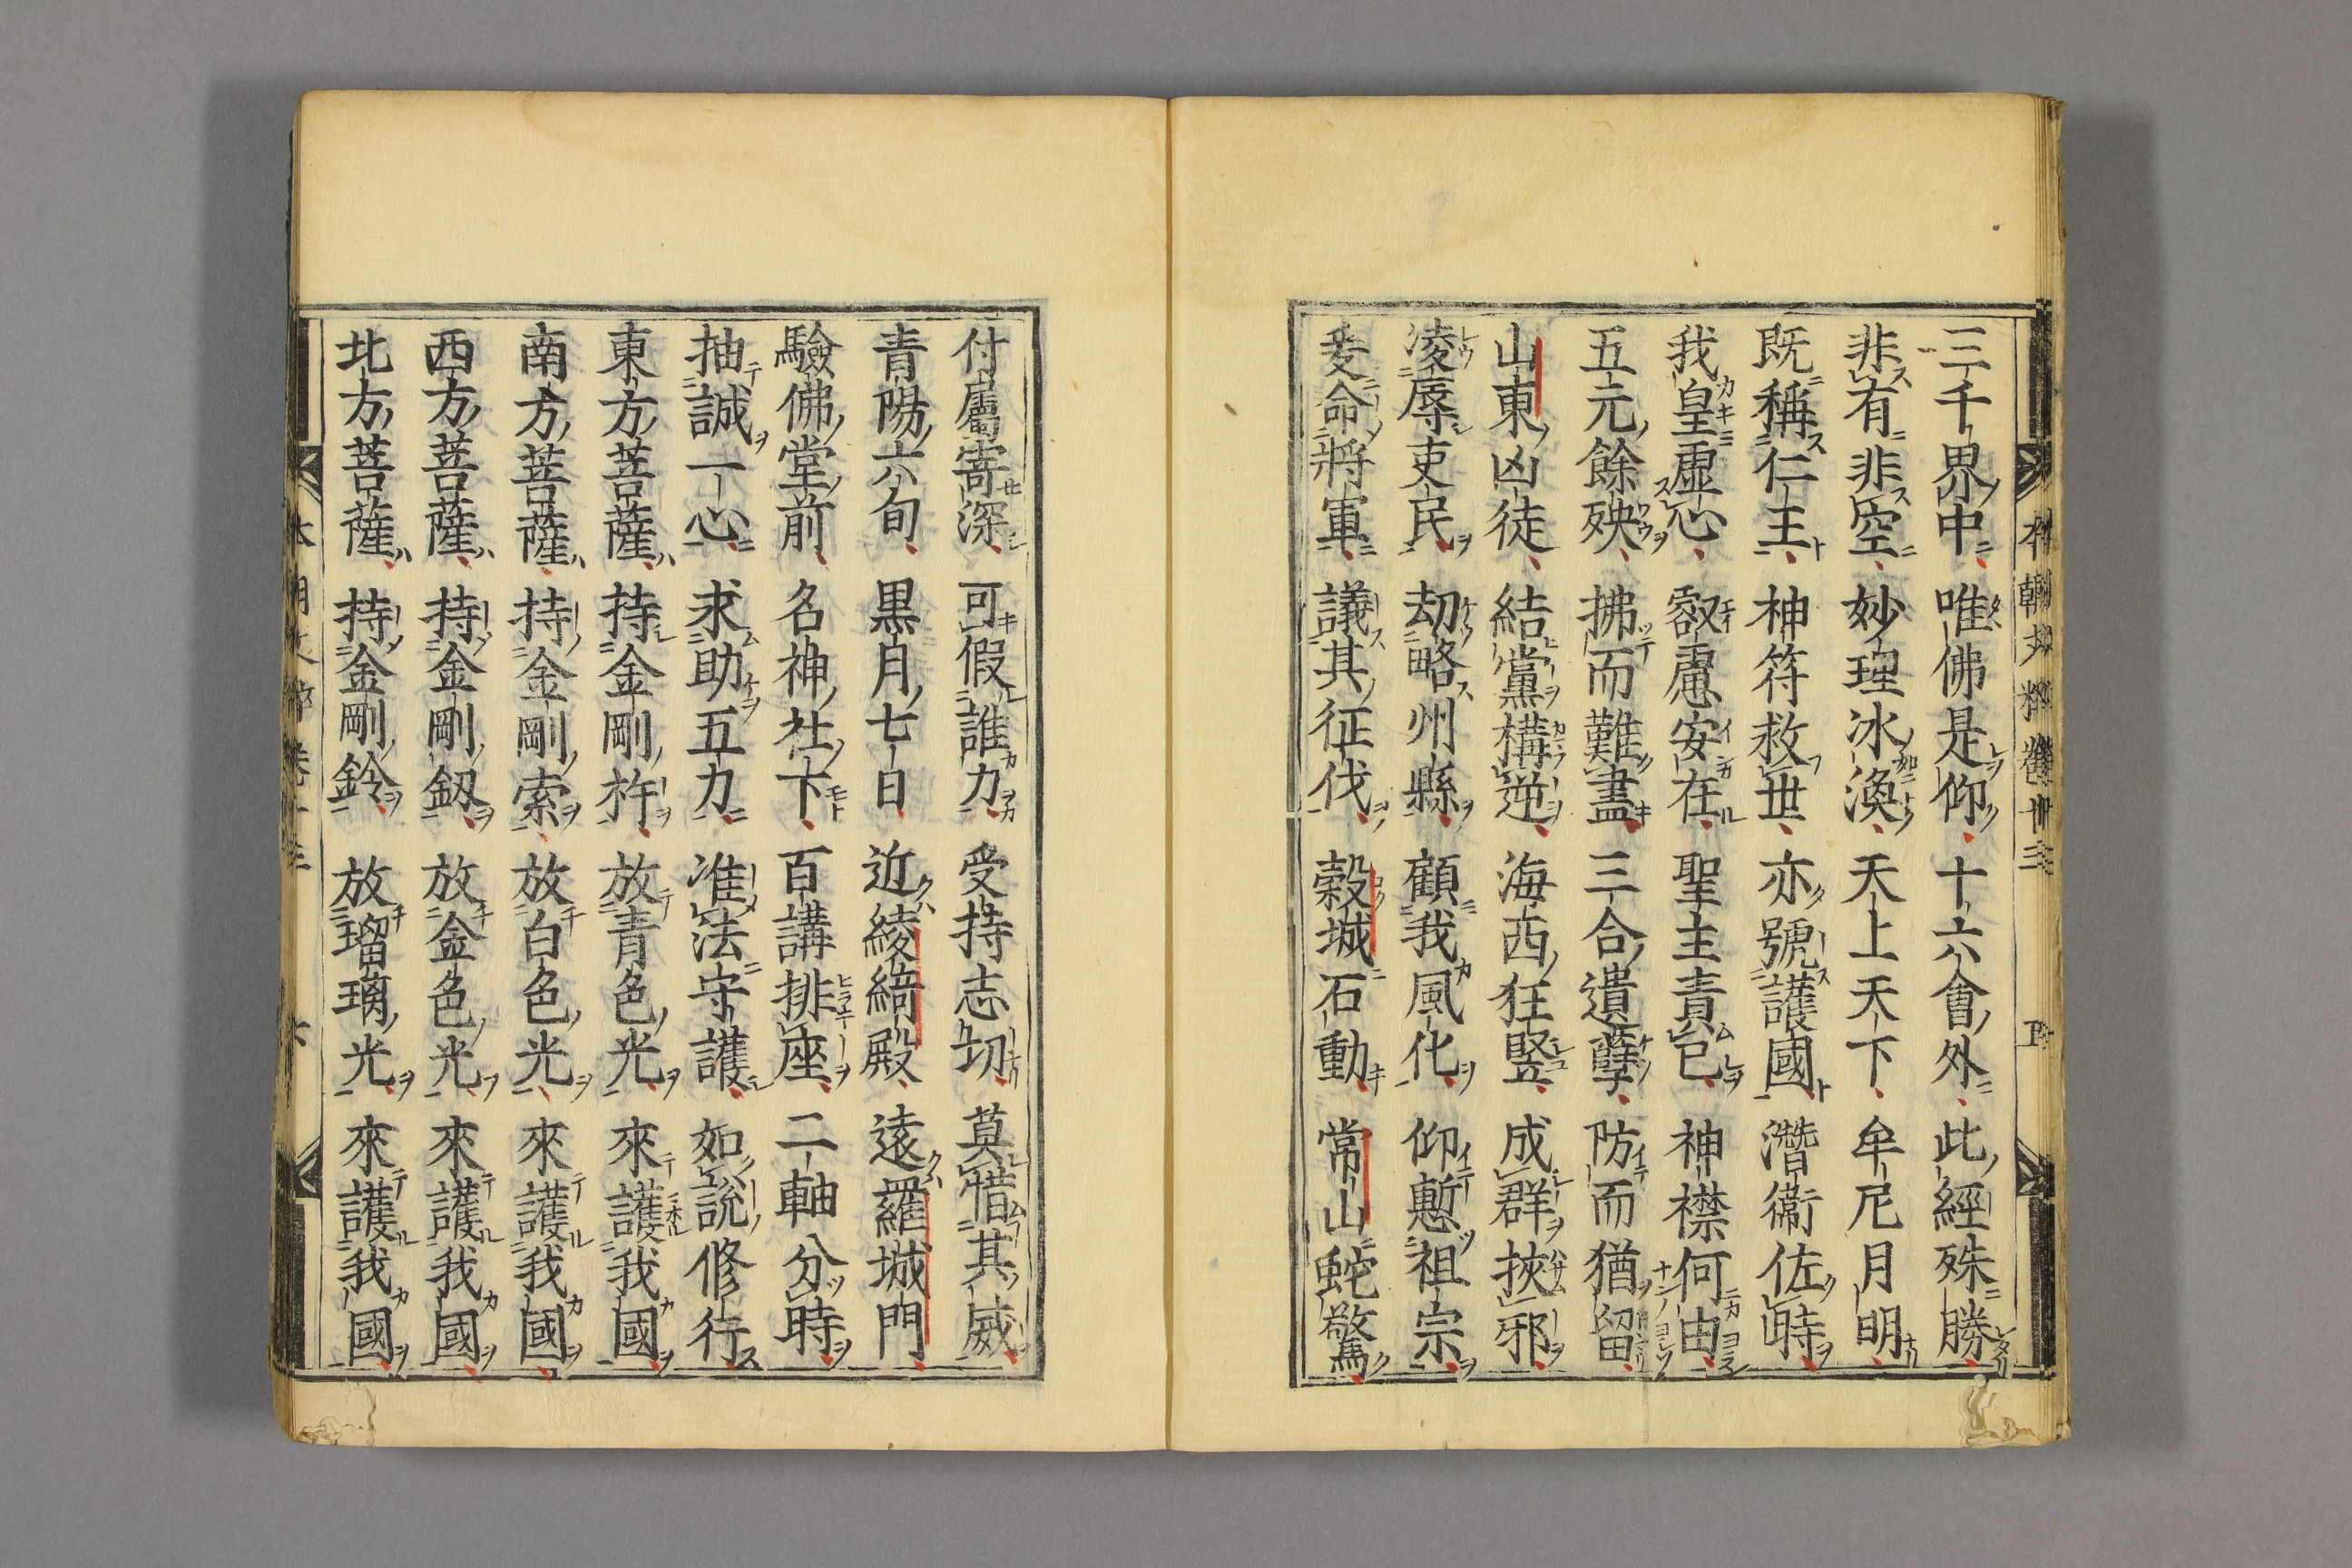 三千界中唯佛是仰十六會外此經殊勝
非有非空妙理冰渙天上天下牟尼月明
既稱仁王神符救世亦號護國潛衞佐時
我皇虛心叡慮安在聖主責己神襟何由
五元餘殃拂而難盡三合遺孽防而猶留
山東凶徒結黨構逆海西狂竪成群挾邪
凌辱吏民劫略州縣顧我風化仰慙祖宗
爰命將軍議其征伐穀城石動常山蛇驚
付屬寄深可假誰力受持志切莫惜其威
青陽六旬黒月七日近綾綺殿遠羅城門
驗佛堂前名神社下百講排座二軸分時
抽誠一心求助五力准法守護如說修行
東方菩薩持金剛杵放青色光來護我國
南方菩薩持金剛索放白色光來護我國
西方菩薩持金剛釼放金色光來護我國
北方菩薩持金剛鈴放瑠璃光來護我國